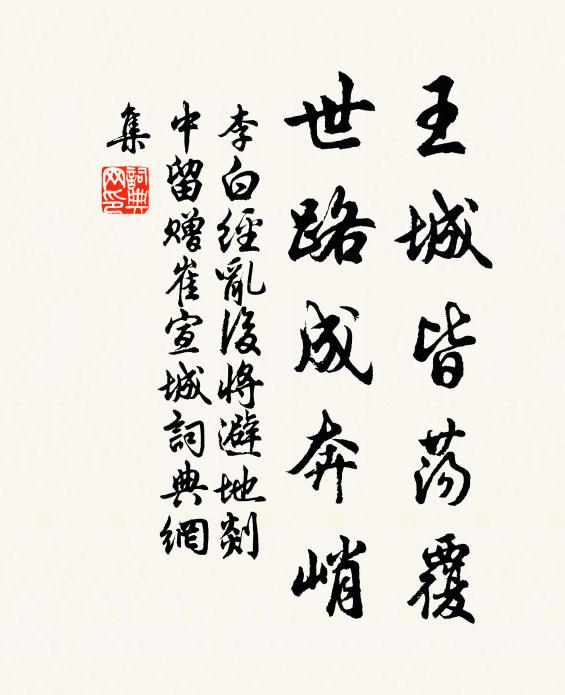 王城皆荡覆
世路成奔峭
李白經亂後將避地剡
中留赠崔宣城詞典網
集
詞典网印